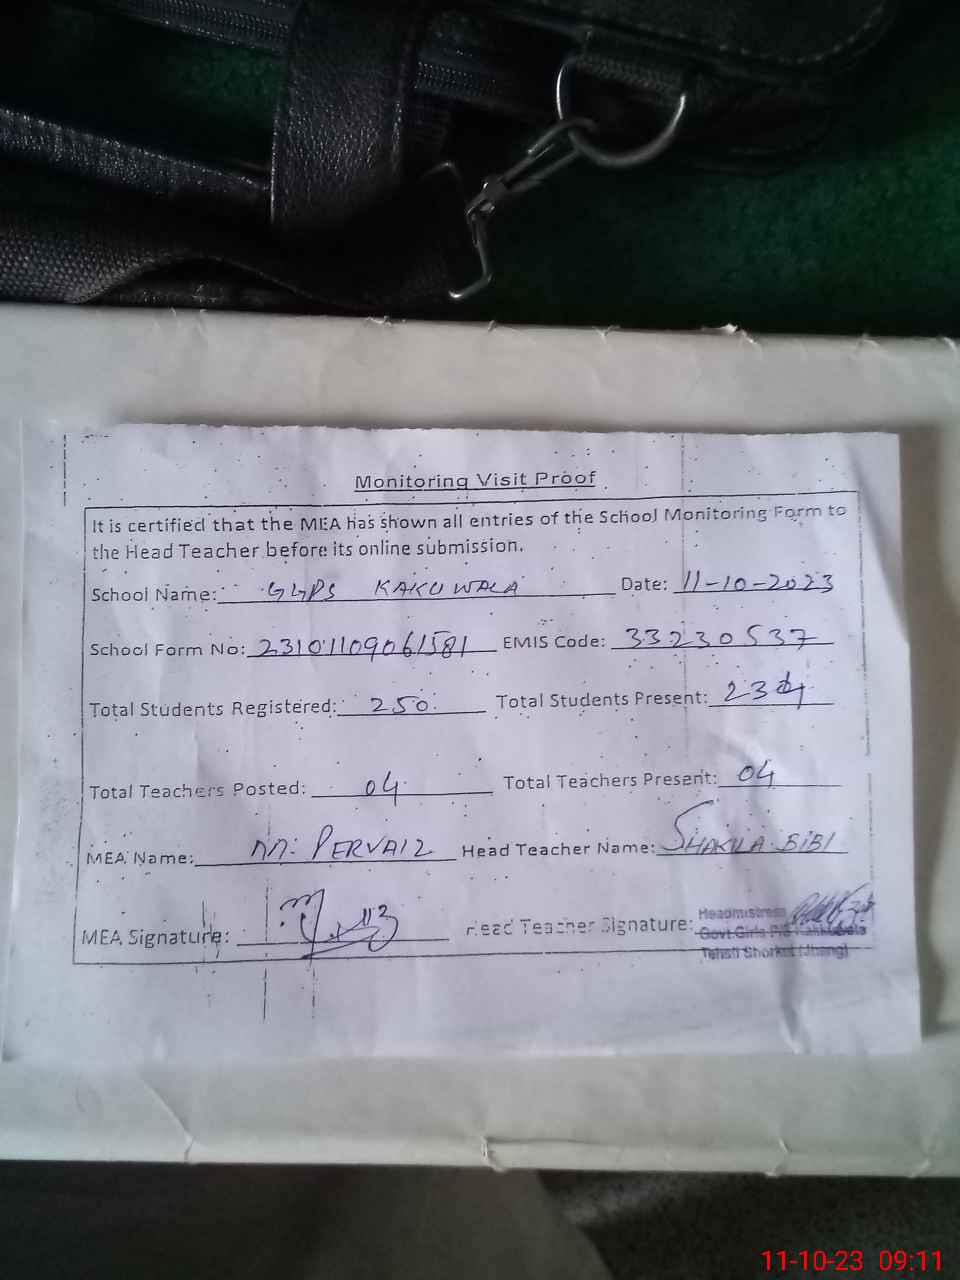 Monitoring Visit Proof
It is certified that the MEA has shown all entries of the School Monitoring Form to
the Head Teacher before its online submission.
School Name: GGPS KAKUWALA Date: 11-10-2023
School Form No: 23101109061581 EMIS Code: 33230537
Total Students Registered: 250 Total Students Present: 234
Total Teachers Posted: 04 Total Teachers Present: 04
MEA Name: M. PERVAIZ Head Teacher Name: SHAKILA BIBI
MEA Signature: Head Teacher Signature:
Headmistress
Govt Girls P/S Kakkuwala
Tehsil Shorkot (Jhang)
11-10-23 09:11